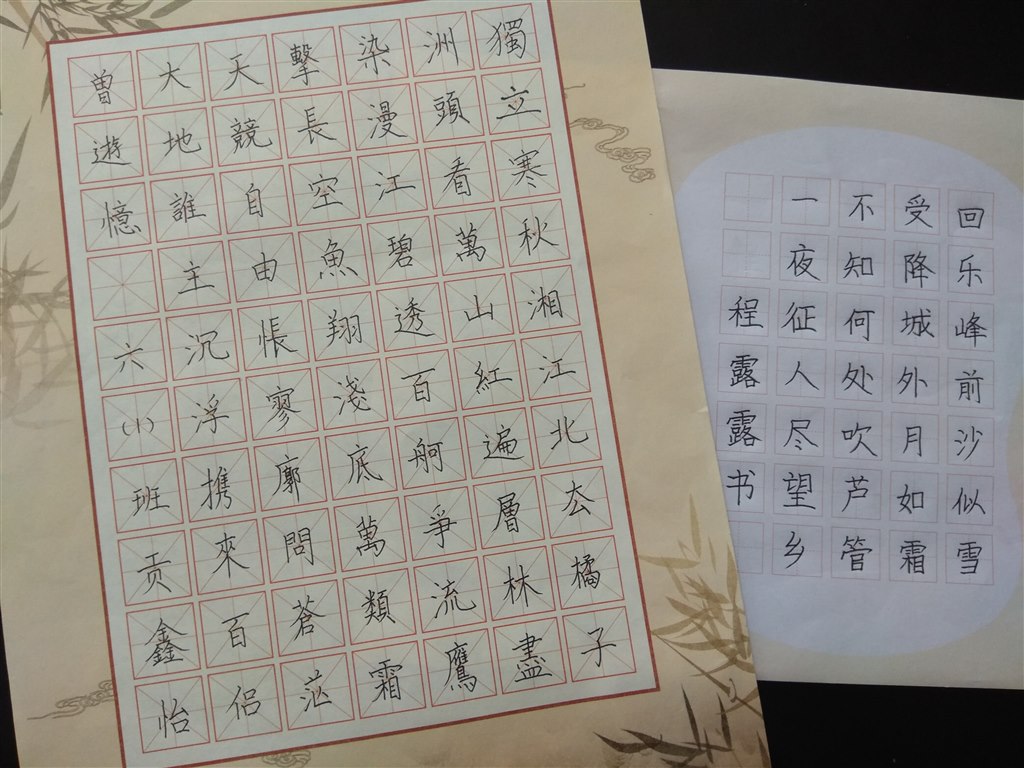 獨立寒秋湘江北厺橘子
洲頭看萬山紅遍層林盡
染漫江碧透百舸爭流鷹
擊長空魚翔淺底萬類霜
天競自由悵寥廓問蒼茫
大地誰主沉浮携來百侣
曾遊憶 六(1)班贡鑫怡
回乐峰前沙似雪
受降城外月如霜
不知何处吹芦管
一夜征人尽望乡
程露露书